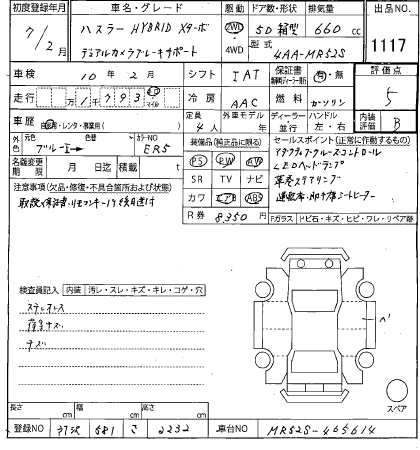 初度登録年月 車名・グレード 駆動 ドア数・形状 排気量 出品NO.
7/2月 ハスラー HYBRID Xターボ 2WD 5D 箱型 660 cc
デュアルカメラブレーキサポート 4WD 型式 4AA-MR52S 1117
車検 10年2月 シフト IAT 保証書 有・無 評価点
走行 1千793 マイル 冷房 AAC 燃料 ガソリン 5
車歴 自家用・レンタ・事業用( ) 定員 4人 ディーラー 並行 ハンドル 左・右 内装評価 B
外色 元色 ブルーI→ 色替 カラーNO ER5 装備品(純正品に限る) セールスポイント(正常に作動するもの)
名義変更期限 月 日迄 積載 t PS PW AW アダプティブクルーズコントロール
注意事項(欠品・修復・不具合箇所および状態) SR TV ナビ LEDヘッドランプ
カワ エアB ABS 革巻ステアリング
取説 保証書・リモコンキー1ケ後日送付 運転席・助手席シートヒーター
R券 8350円 Fガラス トビ石・キズ・ヒビ・ワレ・リペア跡
検査員記入 内装 汚レ・スレ・キズ・キレ・コゲ・穴
キズ
スペア
長さ cm 幅 cm 高さ cm
登録NO 581 さ 2232 車台NO MR52S-465614